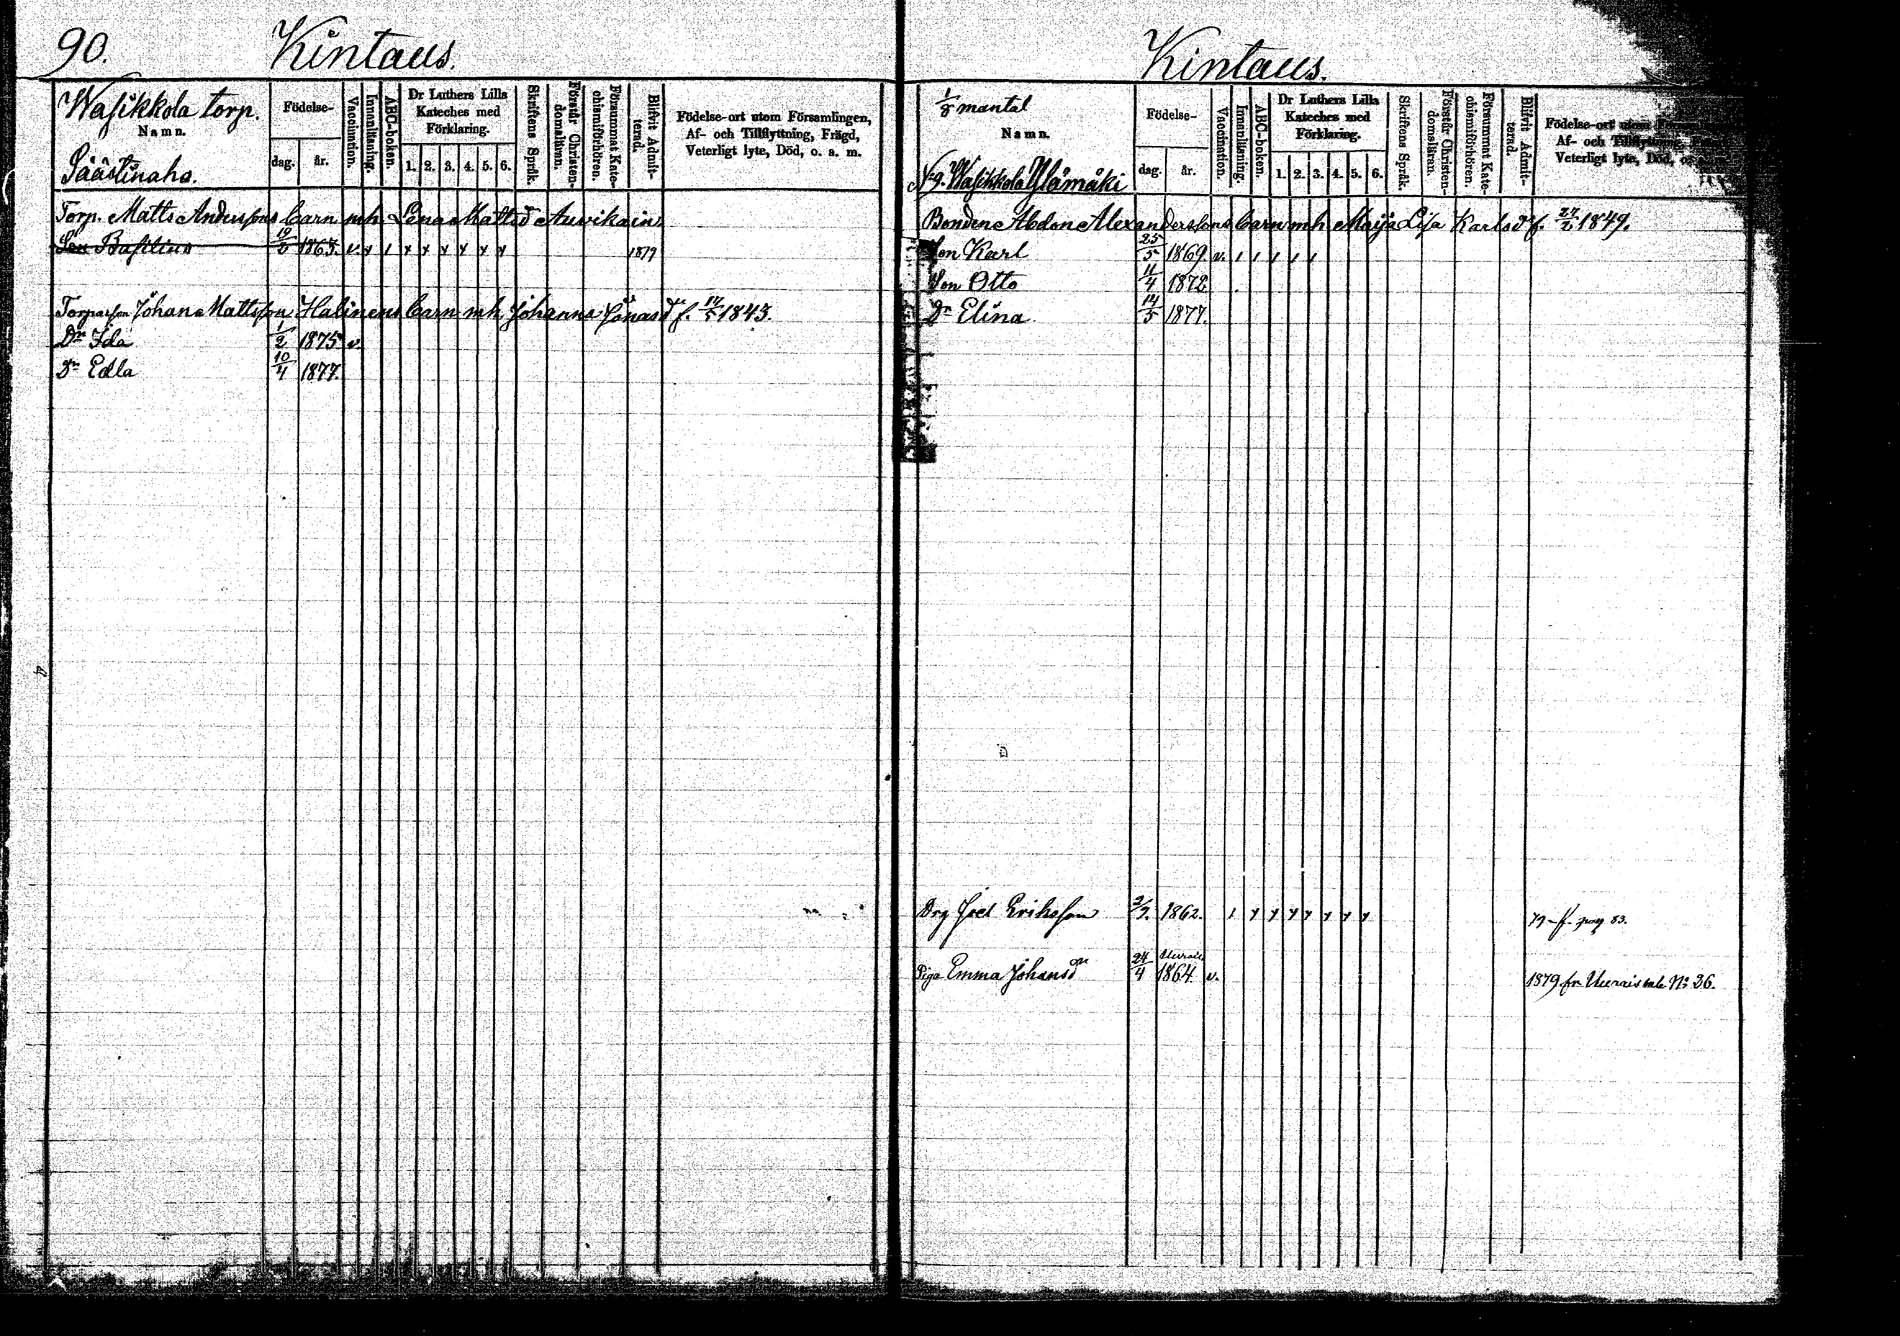 90. Kintaus.
Wasikkola torp.
Namn.
Säästinaho.
Födelse-
dag. år.
Vaccination.
Innanläsning.
ABC-boken.
Dr Luthers Lilla
Kateches med
Förklaring.
1. 2. 3. 4. 5. 6.
Skriftens Språk.
Förstår Christen-
domsläran.
Försummat Kate-
chismiförhören.
Blifvit Admit-
terad.
Födelse-ort utom Församlingen,
Af- och Tillflyttning, Frägd,
Veterligt lyte, Död, o. a. m.
Torp. Matts Anderssons barn mh Lena Mattsd Auvikain
Son Basilius 1863. v. 1877
Torparson Johan Mattsson Halinens barn mh Johanna Jonasdr f. 1843.
Dr Ida 1/2 1875. v.
Dr Edla 10/4 1877.
Kintaus.
1/8 mantal
Namn.
No 9. Wasikkola Ylämäki
Födelse-
dag. år.
Vaccination.
Innanläsning.
ABC-boken.
Dr Luthers Lilla
Kateches med
Förklaring.
1. 2. 3. 4. 5. 6.
Skriftens Språk.
Förstår Christen-
domsläran.
Försummat Kate-
chismiförhören.
Blifvit Admit-
terad.
Födelse-ort utom
Af- och Tillflyttning,
Veterligt lyte, Död, o.
Bonden Abdon Alexanderssons barn mh Maija Lisa Karlsdr f. 1849.
Son Karl 25/5 1869. v.
Son Otto 11/4 1872.
Dr Elina 14/5 1877.
Drg Joel Eriksson 1862. 79 f. pag 83.
Piga Emma Johansdr 24/4 1864. v. 1879 fr Uurais No 36.